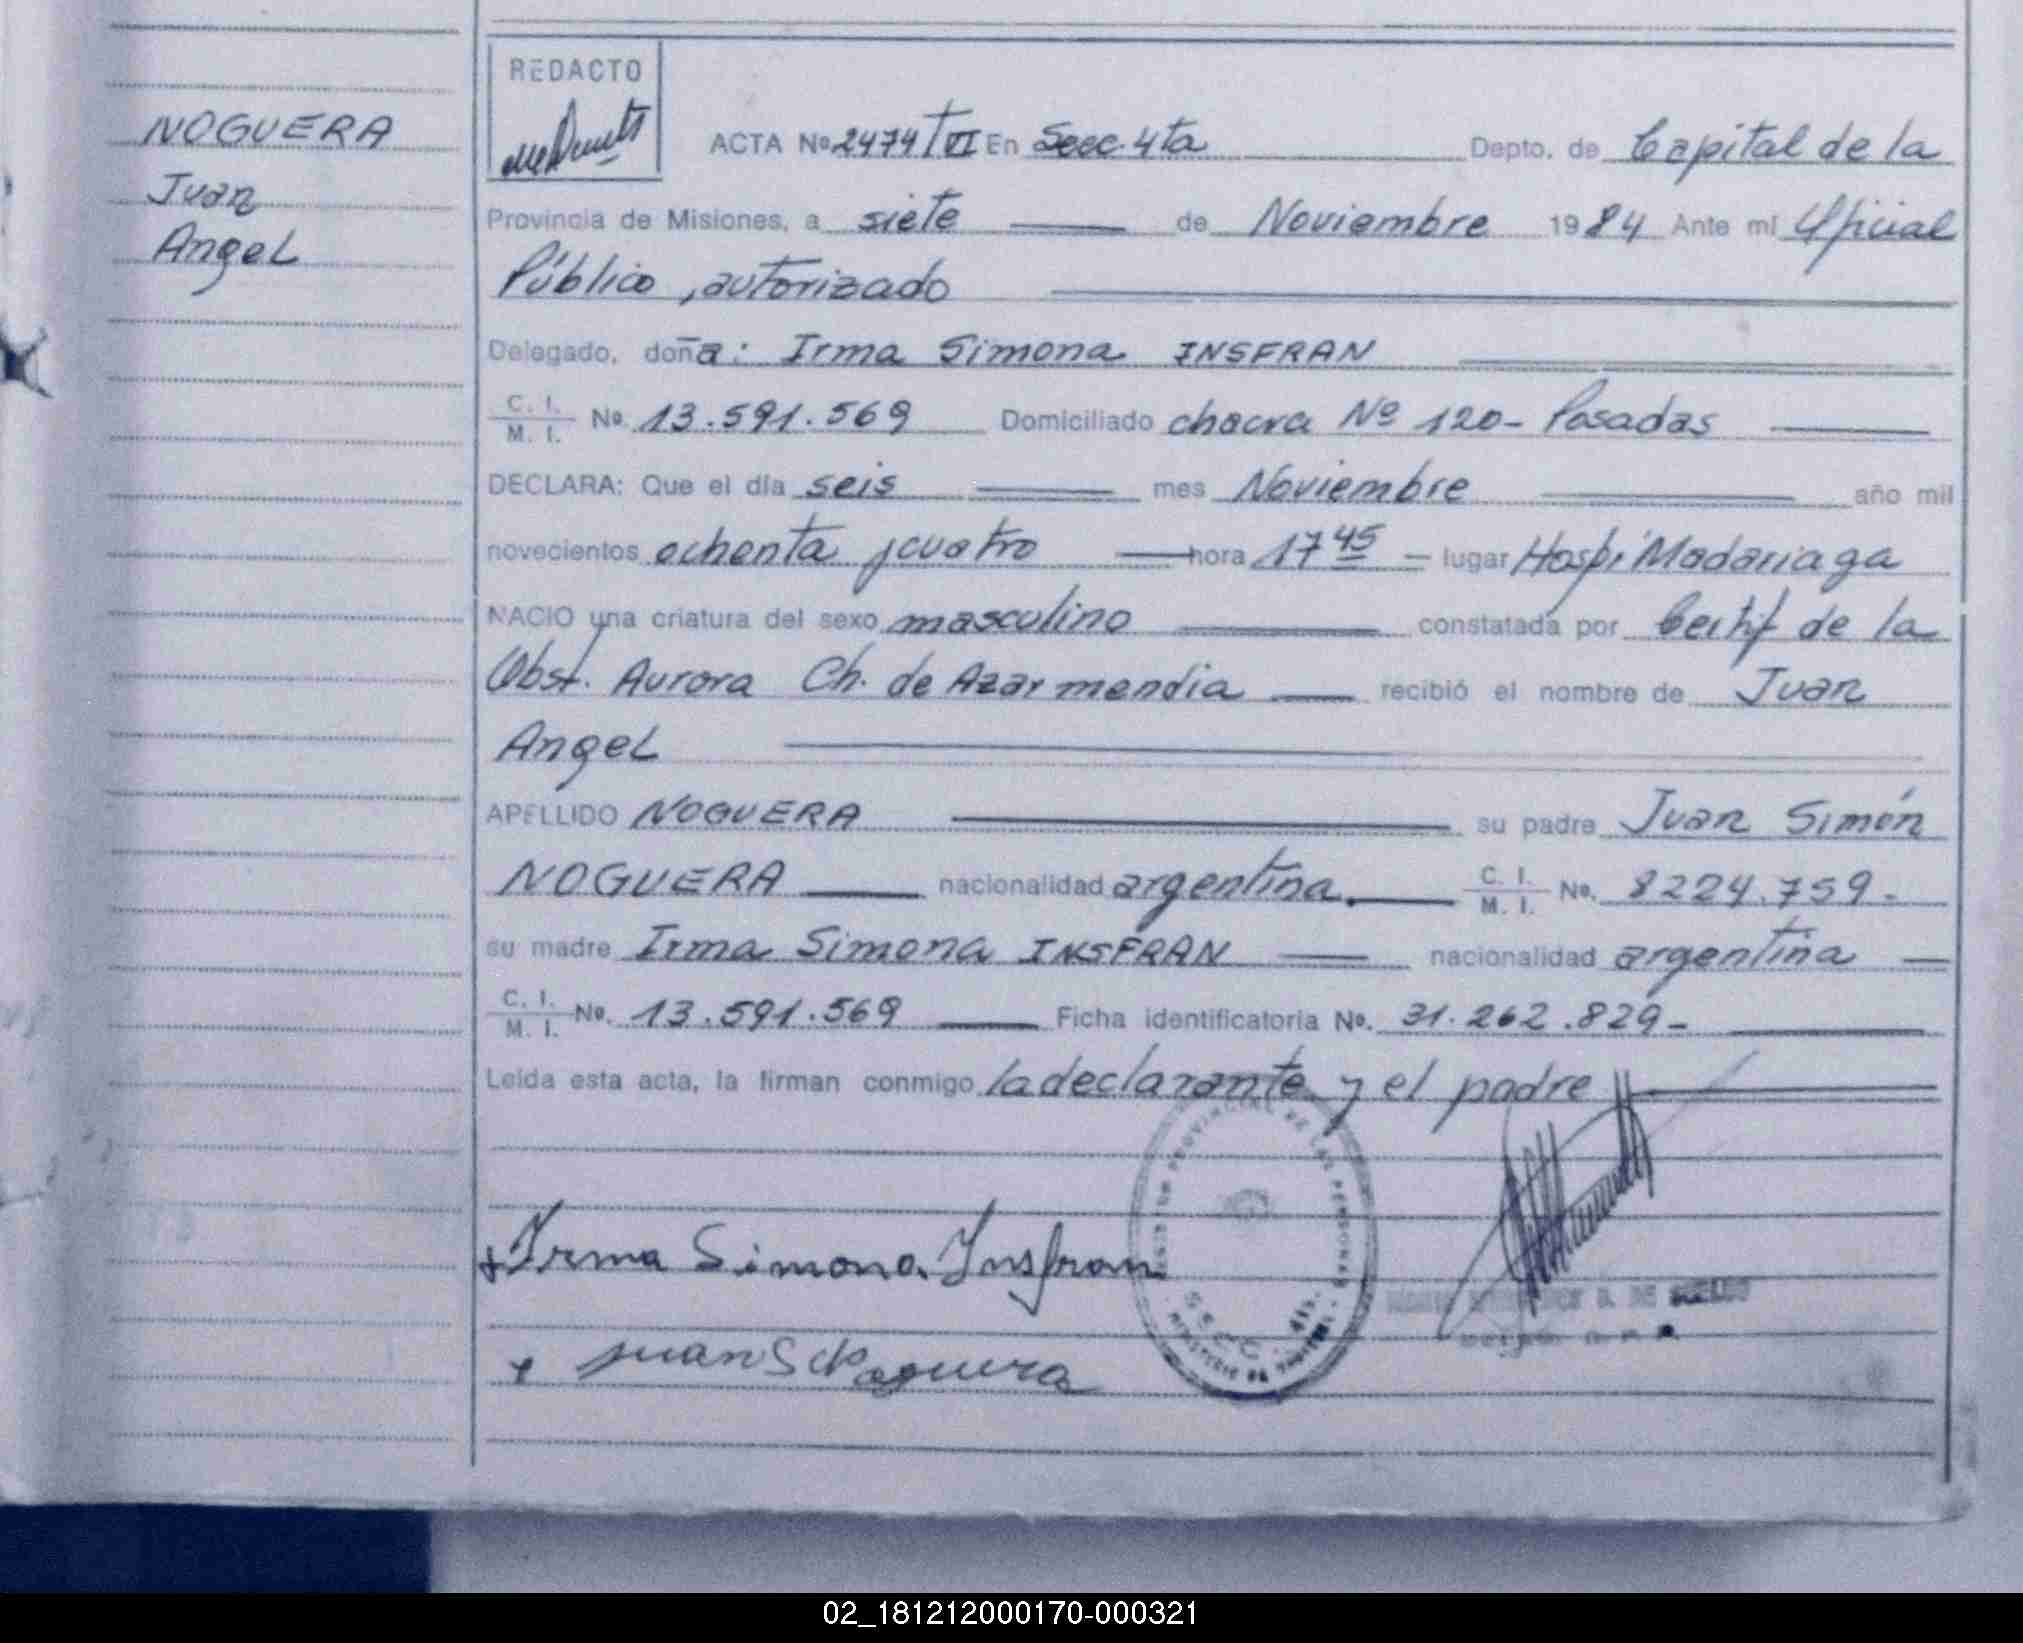 NOGUERA
Juan
Angel
REDACTO
ACTA Nº 2474 T VI En Secc. 4ta Depto. de Capital de la
Provincia de Misiones, a siete de Noviembre 1984 Ante mi Oficial
Público, autorizado
Delegado, doña: Irma Simona INSFRAN
C. I.
M. I. No. 13.591.569 Domiciliado chacra Nº 120 - Posadas
DECLARA: Que el día seis mes Noviembre año mil
novecientos ochenta y cuatro hora 17 45 lugar Hosp. Madariaga
NACIO una criatura del sexo masculino constatada por Certif de la
Obst. Aurora Ch. de Azarmendia recibió el nombre de Juan
Angel
APELLIDO NOGUERA su padre Juan Simón
NOGUERA nacionalidad argentina. C. I.
M. I. No. 8224.759.-
su madre Irma Simona INSFRAN nacionalidad argentina
C. I.
M. I. No. 13.591.569 Ficha identificatoria No. 31.262.829-
Leída esta acta, la firman conmigo la declarante y el padre
Irma Simona Insfran
Juan S Noguera
PROVINCIAL DE LAS PERSONAS
02_181212000170-000321